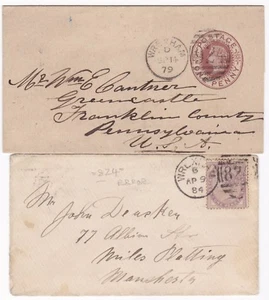 WREXHAM
79
POSTAGE
ONE PENNY
Mr. Wm. E. Cantner
Greencastle
Franklin County
Pennsylvania
U.S.A.
"324"
ERROR
WREXHAM
B
AP 9
84
Mr.
John
77 Albion
Miles Platting
Manchester